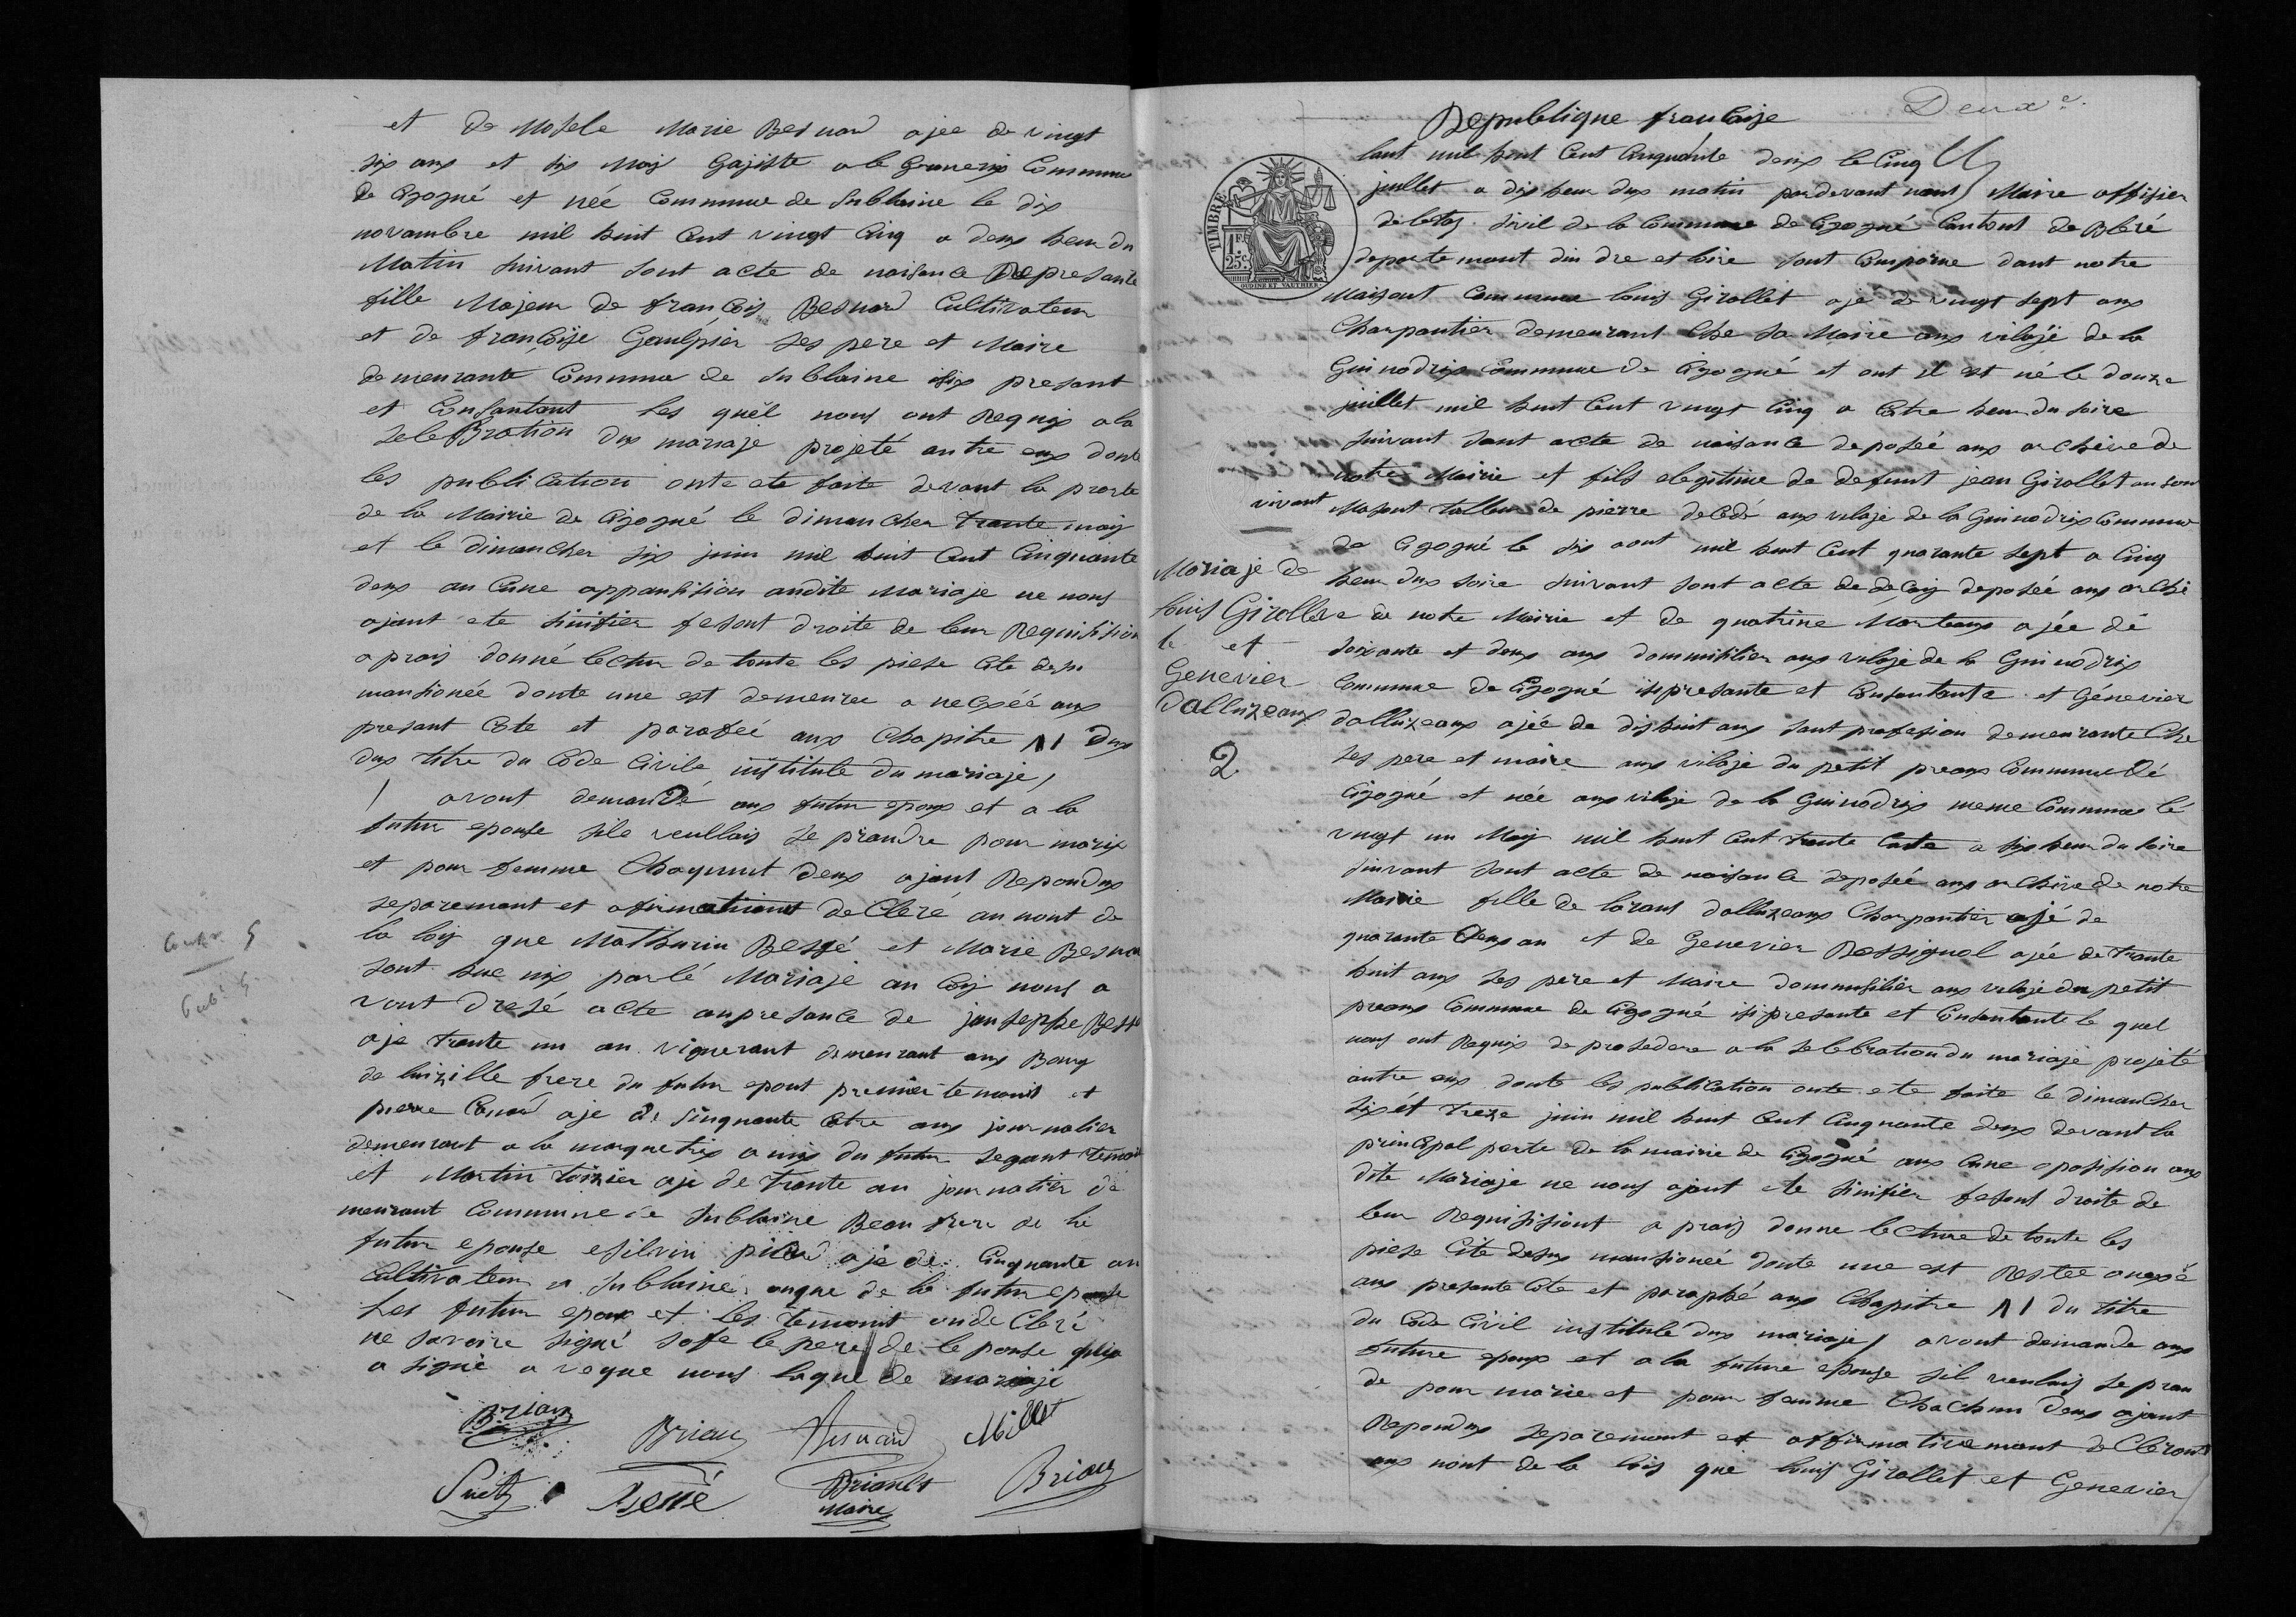 et de Mosele Marie Besnard ajee de vingt
six ans et six Mois Gajiste a la Commune
de Cigogné et née Commune de Sublaine le dix
novambre mil huit Cent vingt Cinq a deux heur du
Matin suivant sont acte de naisance Represante
fille Majeur de francois Besnard Cultivateur
et de françoise Gaulpier ses pere et Maire
demeurante Commune de Sublaine isix presant
et Consantant les quèl nous ont Requis a la
selebration dux mariaje projeté antre eux donte
les publication onte ete faite devant la porte
de la Mairie de Cigogné le dimancher trante maiy
et le dimancher six juin mil huit Cent Cinquante
deux au Cune appausision audite Mariaje ne nous
ajant ete sinifier fesont droite de leur Requisision
a prais donné lectur de toute les piese Cite desu
mansionée donte une est demeuree a necséé aux
presant Cote et parafeé aux Chapitre 11 dux
dux titre du Code Civile institule du mariaje /
/ avont demandé aux futur epoux et a la
futur epouse sile veullais se prandre pour marix
et pour femme Chaqunut deux ajant Repondux
separemant et afirmativant de Cleré au nont de
la loiy que Mathurin Bessé et Marie Besnar
sont hue nix par lé Mariaje au loiy nous a
vont dresé acte aupresance de jauseppe Bessé
aje trante un an vignerant demeurant aux Bourg
de luzille frere du futur epout premier temoint et
pierre aje de sinquante Catre ans journalier
demeurant a la marquetrix a mix du futur segant temoin
et Martin toizier aje de trante an journalier de
meurant Commune de Sublaine Beau frere de la
futur epouse esilvin aje de Cinquante an
Cultivateur a Sublaine onque de la futur epouse
Les futur epoux et les temoint onde Cleré
ne savoire signé sofe le pere de le pouse quix
a signé a veque nous laque de mariaje
Briau
Briau Besnard Millet
Suet Bessé Briault Briau
Maire
Deuxe
Republique francaise
lant mil huit Cent Cinquante deux le Cinq
juillet a dix heur dux matin pardevant nous Maire offisier
deletas sivil de la Commune de Cigogné Cantont de Bléré
departemant din dre et loire sont Comparue dant notre
Maisont Commune louis Girollet ajé de vingt sept ans
Charpantier demeurant Che sa Maire aux vilajé de la
Guinodrix Commune de Cigogné et ont il est né le douze
juillet mil huit Cent vingt Cinq a Catre heur du soire
suivant sont acte de naisance deposée aux archive de
notre Mairie et fils elegitime de defunt jean Girollet an son
vivant Masont talleur de pierre decedé aux vilaje de la Guinodrix Commune
de Cigogné le dix aout mil huit Cent quarante sept a Cinq
Mariaje de
heur dux soire suivant sont acte de decaiy deposée aux archi
louis Girolle
ve de notre Mairie et de quatrine Marteaux ajée de
t et
soixante et deux ans dommisilier aux vilaje de la Guinodrix
Genevier
Commune de Cigogné isipresante et Consantante et Génevier
dalluzeaux
dalluzeaux ajée de dix huit ans sant profesion demeurante Che
2
ses pere et maire aux vilaje du petit preaux Commune dé
Cigogné et née aux vilaje de la Guinodrix meme Commune lé
vingt un Maiy mil huit Cent trante Catre a six heur du soire
suivant sont acte de naisance deposée aux archive de notre
Mairie fille de lorans dalluzeaux Charpantier ajé de
quarante deux an et de Genevier Rossignol ajée de trante
huit ans ses pere et Maire dommisilier aux vilaje du petit
preaux Commune de Cigogné isi presante et Consantante le quel
nous ont Requix de prosedere a la selebration du mariaje projeté
antre eux donte les publication onte ete faite le dimancher
six et treze juin mil huit Cent Cinquante deux devant la
principal porte de la mairie de Cigogné aux Cune oposision aux
dite Mariaje ne nous ajant ete sinifier fesont droite de
leur Requisisiont a prais donne lecture de toute les
piese Cite desux mansionée donte une est Restée anexsé
aux presante Cote et paraphé aux Chapitre 11 du titre
du Code Civil institulé dux mariaje / avont demande aux
future epoux et a la future epouse sil veulais se pran
de pour marie et pour femme Chachun deux ajant
Repondux separemant et affirmativemant de Cleront
aux nont de la loiy que louis Girollet et Genevier
TIMBRE
1 F. 25 c.
OUDINE ET VAUTHIER